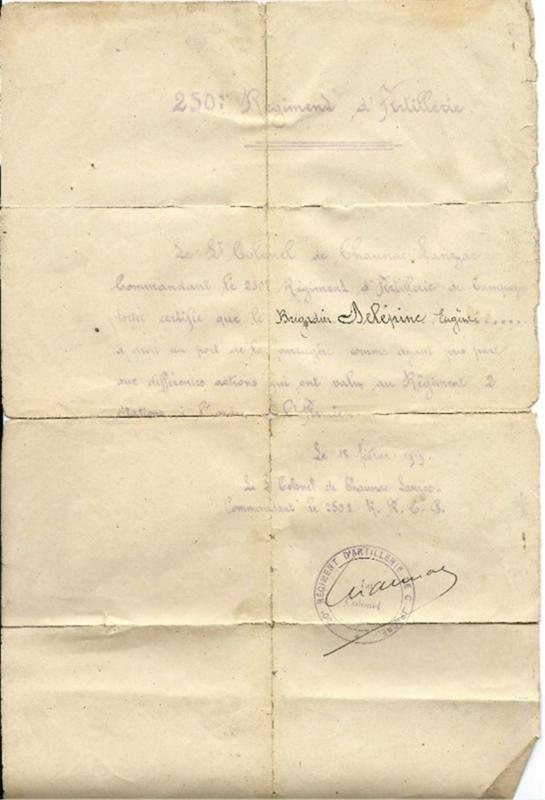 250e Régiment d'Artillerie
Le Lt Colonel de Chaunac Lanzac
Commandant le 250e Régiment d'Artillerie de Campagne
certifie que le Brigadier Delépine Eugène.....
a droit au port de la fourragère comme ayant pris part
aux différentes actions qui ont valu au Régiment 2
citations à l'ordre de l'Armée.
Le 18 février 1919.
Le Lt Colonel de Chaunac Lanzac.
Commandant le 250e R. A. C. P.
RÉGIMENT D'ARTILLERIE DE
Le
Colonel
Chaunac